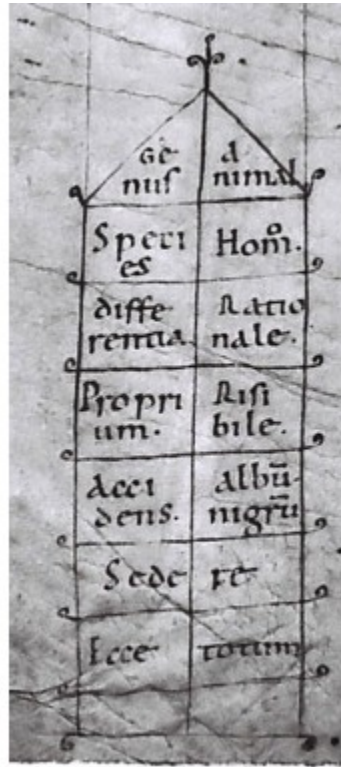 Ge
nus
A
nimal
Speci
es
Homō.
diffe
rentia
Ratio
nale.
Propri
um.
Risi
bile.
Acci
dens.
albū.
nigrū
Sede re
Ecce totum